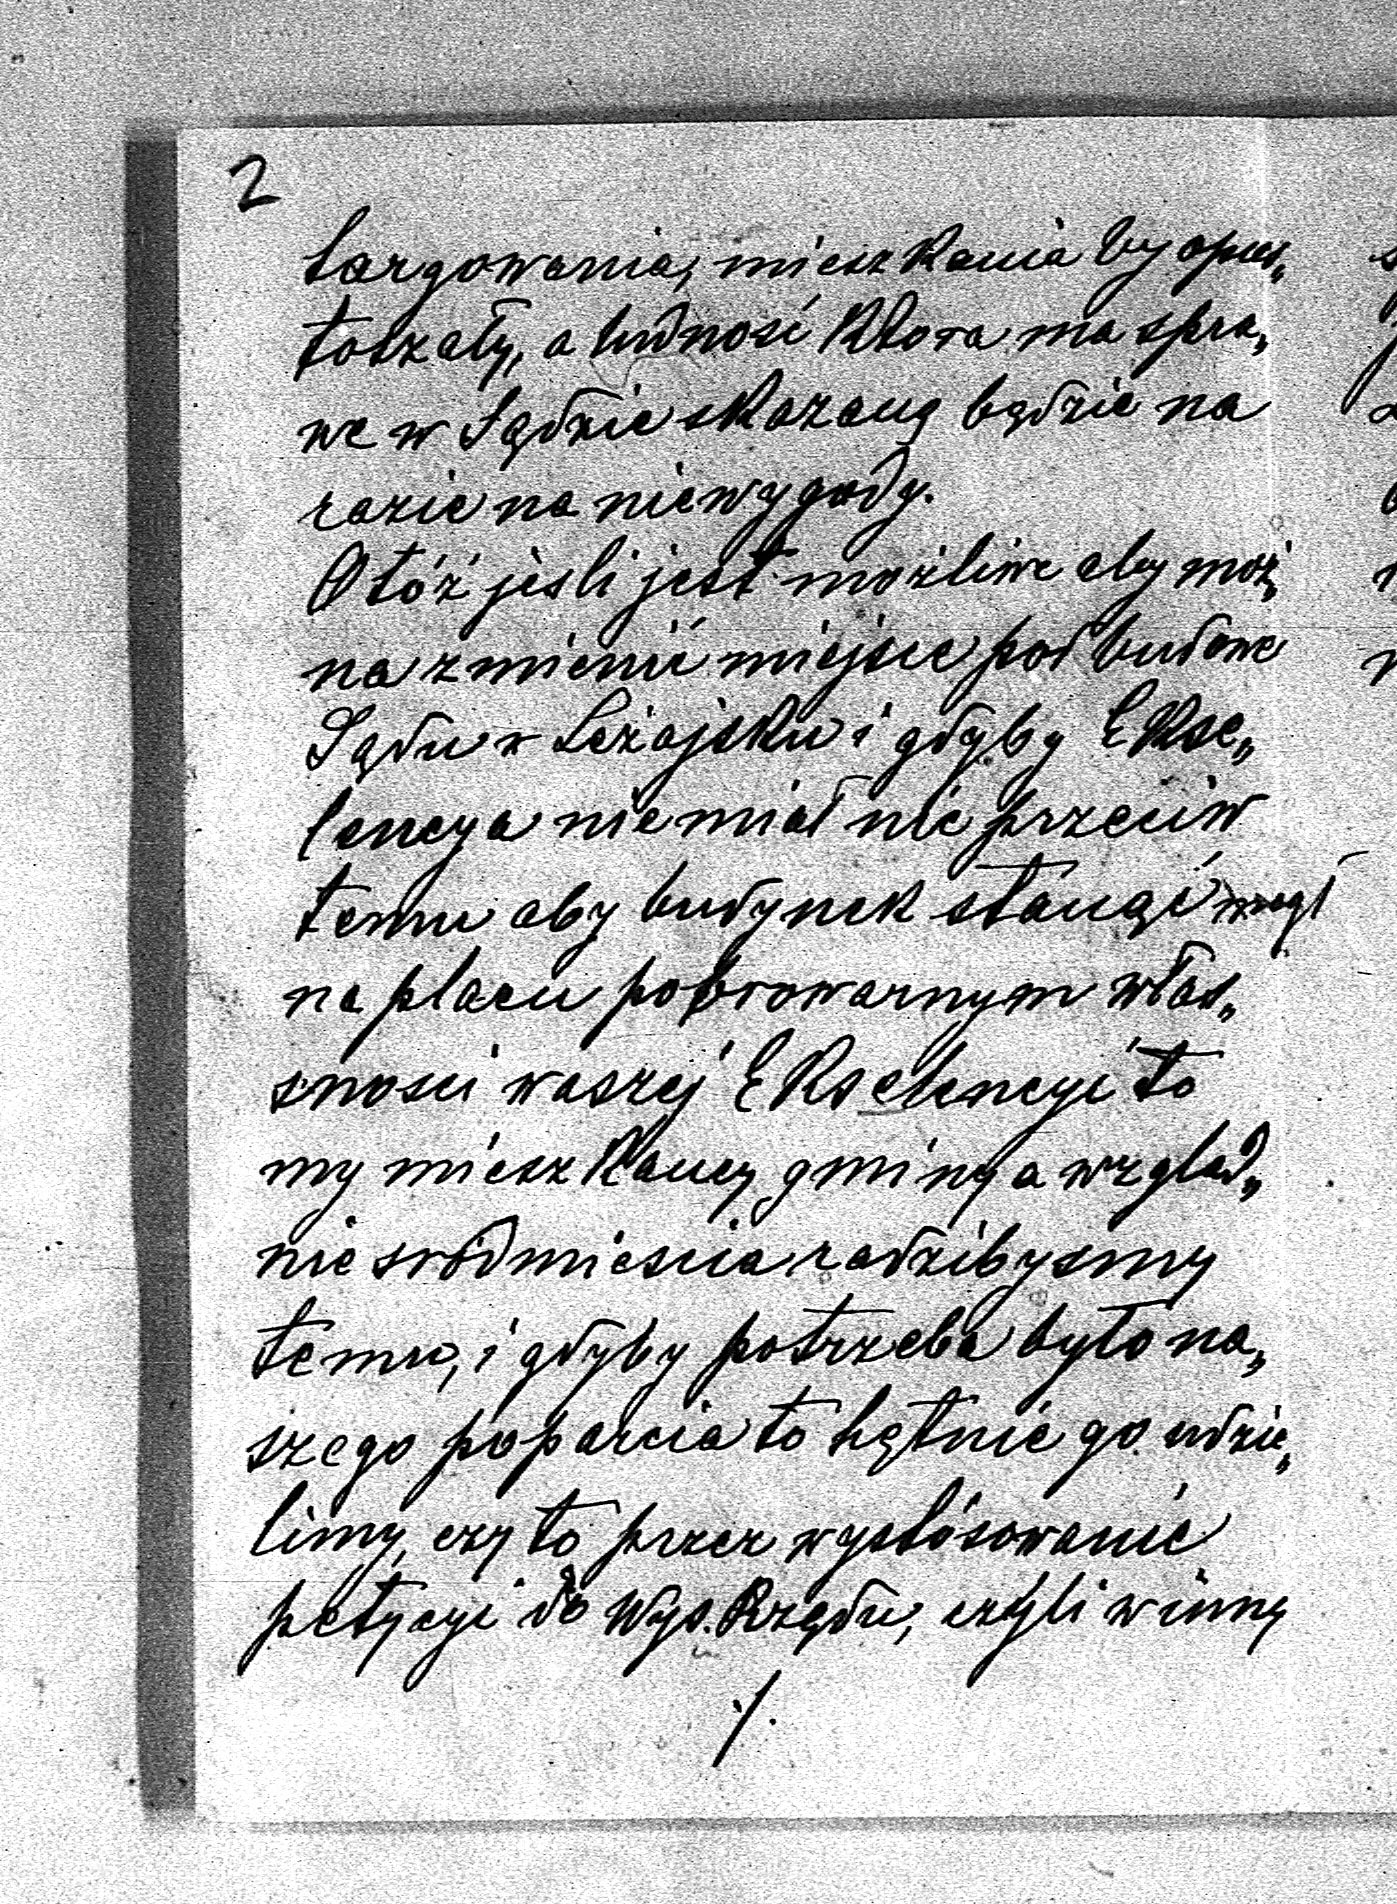 2
targowania, mieszkania by opus„
toszały, a ludność która ma spra„
we w Sądzie skazaną będzie na
razie na niewygody.
Otóż jésli jest możliwe aby moż„
na zmienić miejsce pod budowe
Sądu w Leżajsku i gdyby Ekse„
lencya niemiał nic przeciw
temu aby budynek stanąć mógł
na placu pobrowarnym włas„
snosci waszej Ekselencyi to
my mieszkancy gminy a wzglad„
nie sródmiescia radzibysmy
temu, i gdyby potrzeba było na„
szego poparcia to hętnie go udzie„
limy, czy to przez wystósowanie
petycyi do Wys. Rządu, czyli w inny
./.